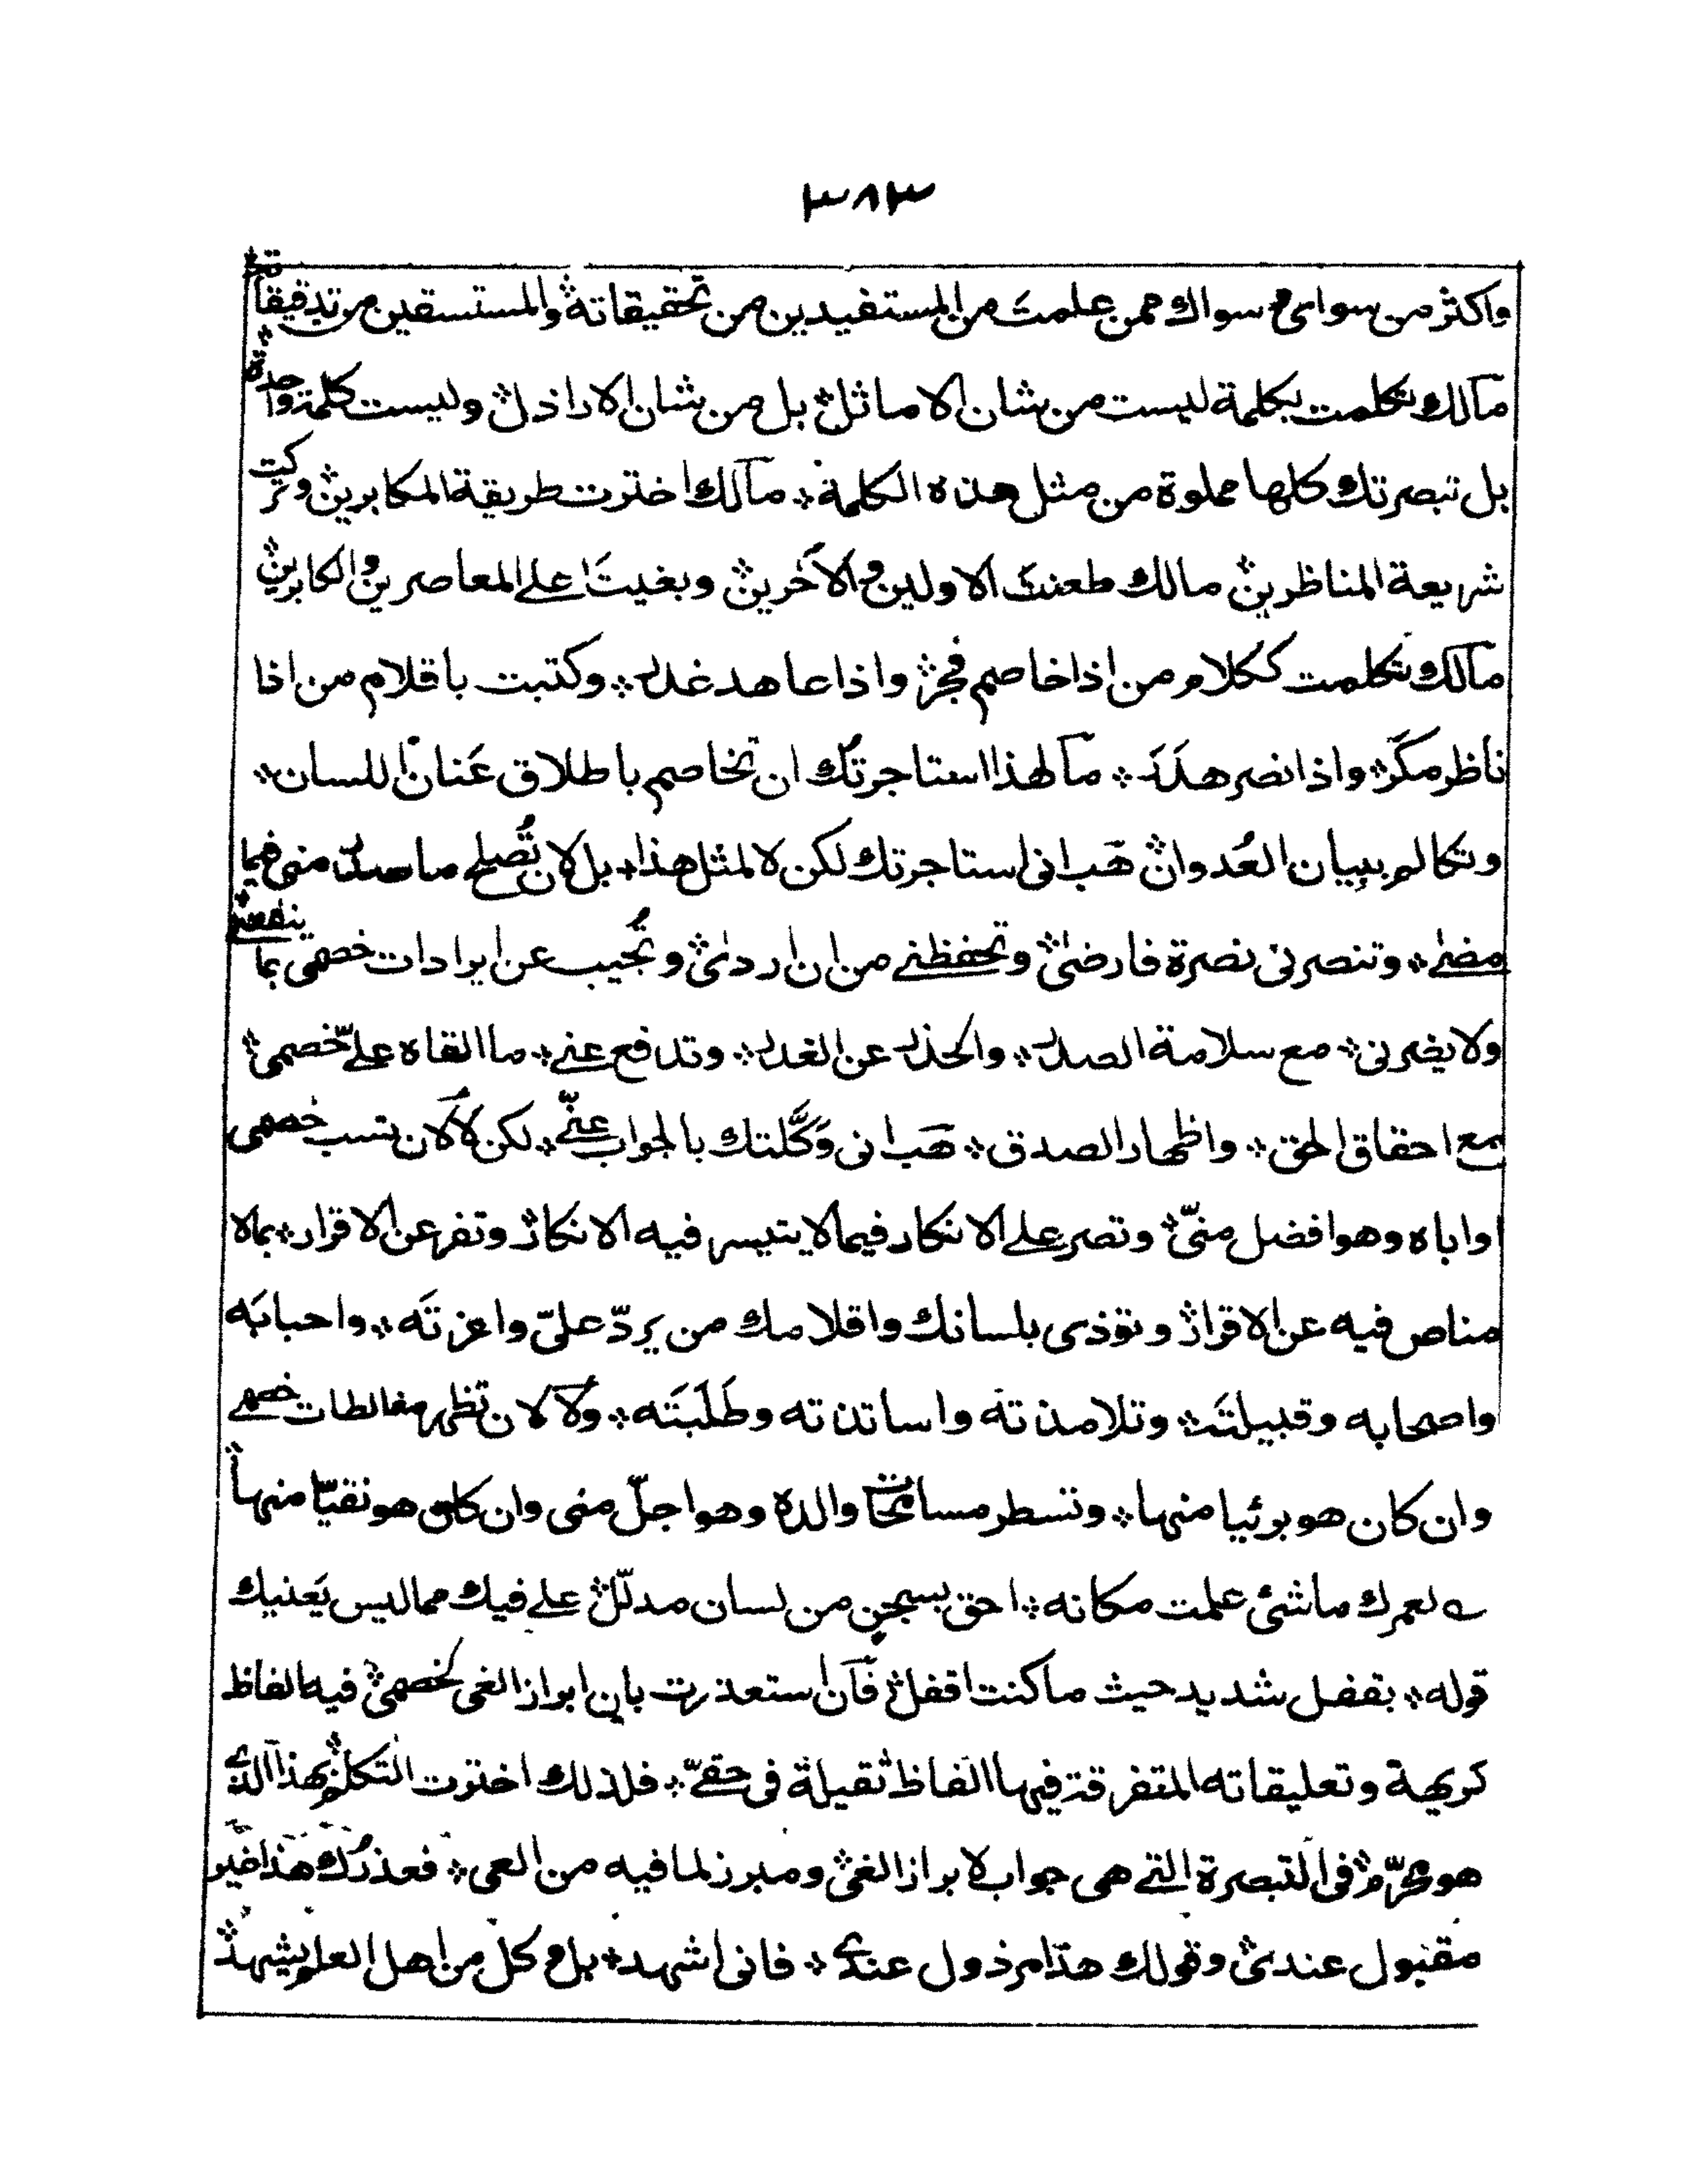 ٣٨٣
واكثر من سواى و سواك ممن علمت من المستفيدين من تحقيقاته ۞ والمستسقين من تدقيقاته ۞
مآلك تكلمت بكلمة ليست من شان الاماثل ۞ بل من شان الاراذل ۞ وليست كلمة واحدة
بل تبصرتك كلها مملوة من مثل هذه الكلمة ۞ مآلك اخترت طريقة المكابرين ۞ وتركت
شريعة المناظرين ۞ مالك طعنت الاولين والآخرين ۞ وبغيت على المعاصرين والكابرين ۞
مآلك تكلمت ككلام من اذا خاصم فجر ۞ واذا عاهد غدر ۞ وكتبت باقلام من اذا
ناظر مكر ۞ واذا نصر هذر ۞ مآ لهذا استاجرتك ان تخاصم باطلاق عنان اللسان ۞
وتكالم ببيان العُدوان ۞ هَب انى استاجرتك لكن لا لمثل هذا ۞ بل لان تُصلح ما صدر منى فيما
مضے ۞ وتنصرنى نصرة فارضى ۞ وتحفظنے من ان اردى ۞ وتُجيب عن ايرادات خصمى بما ينفعنے ۞
ولا يضرنى ۞ مع سلامة الصدر ۞ والحذر عن الغدر ۞ وتدفع عنے ۞ ما القاه علے خصمى ۞
مع احقاق الحق ۞ واظهار الصدق ۞ هَب انى وَكَّلتك بالجواب عنّے ۞ لكن لا لان تسب خصمى
واباه وهو افضل منّى ۞ وتصر علے الانكار فيما لا يتيسر فيه الانكار ۞ وتفر عن الاقرار ۞ بما لا
مناص فيه عن الاقرار ۞ وتوذى بلسانك واقلامك من يردّ علىّ واعزته ۞ واحبابه
واصحابه وقبيلته ۞ وتلامذته واساتذته وطَلَبَته ۞ ولا لان تظهر مغالطات خصمے
وان كان هو برئيا منها ۞ وتسطر مسامحات والده وهو اجلّ منى وان كان هو نقيّا منها ۞
ے لعمرك ما شئ علمت مكانه ۞ احق بسجن من لسان مدلّل ۞ علے فيك مما ليس يَعنيك
قوله ۞ بقفل شديد حيث ما كنت اقفل ۞ فآن استعذرت بان ابراز الغى لخصمى ۞ فيه الفاظ
كريهة وتعليقاته المتفرقة فيها الفاظ ثقيلة فى حقےّ ۞ فلذلك اخترت التكلم ۞ بهذا الذے
هو محرّم ۞ فى التبصرة التے هى جواب لابراز الغى ۞ ومبرز لما فيه من العى ۞ فعذرُك هذا غير
مقبول عندى ۞ وقولك هذا مرذول عندے ۞ فانى اشهد ۞ بل و كل من اهل العلم يشهد ۞